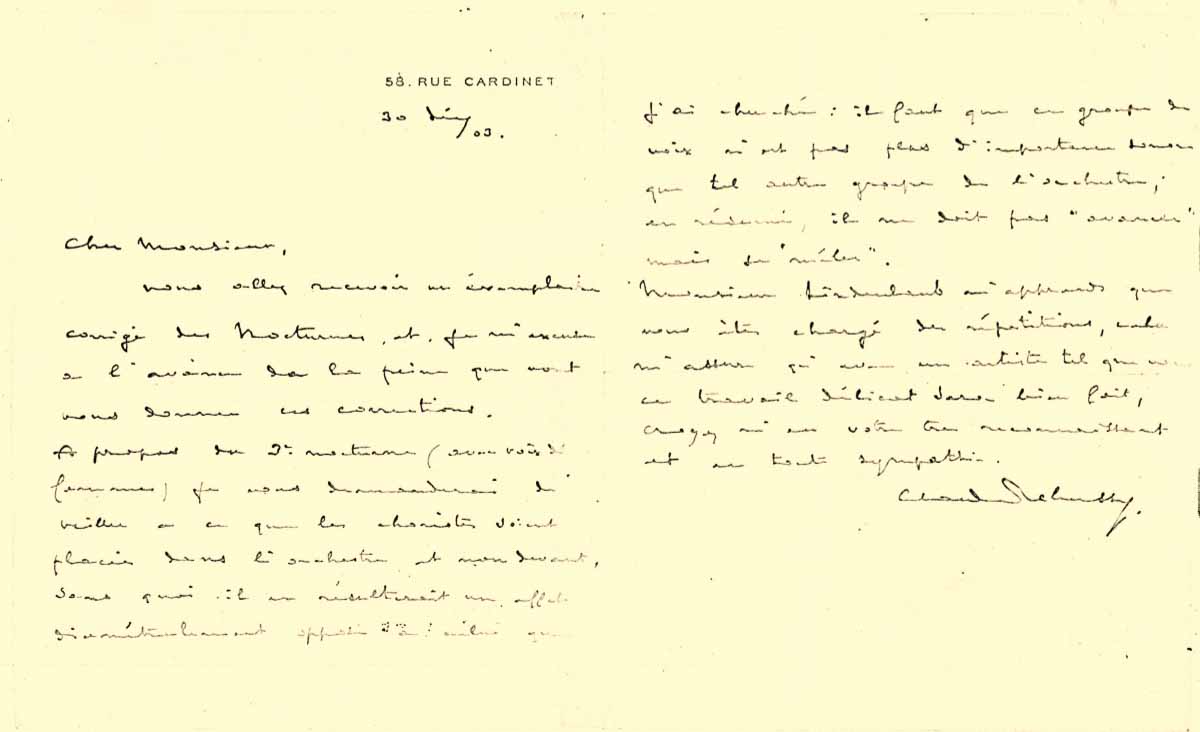 58. RUE CARDINET
30 déc/03.
Cher Monsieur,
vous allez recevoir un éxemplaire
corrigé des Nocturnes, et, je m'excuse
a l'avance de la peine que vont
vous donner ces corrections.
A propos du 3e nocturne (avec voix de
femmes) je vous demanderai de
veiller a ce que les choristes soient
placées dans l'orchestre et non devant,
sans quoi il en résulterait un effet
diamétralement opposé à celui que
j'ai cherché : il faut que ce groupe de
voix n'ait pas plus d'importance sonore
que tel autre groupe de l'orchestre ;
en résumé, il ne doit pas "avancer"
mais se "mêler".
Monsieur m'apprends que
vous êtes chargé des répétitions, cela
m'assure qu'avec un artiste tel que vous
ce travail délicat sera bien fait,
croyez m'en votre très reconnaissant
et en toute sympathie.
Claude Debussy.